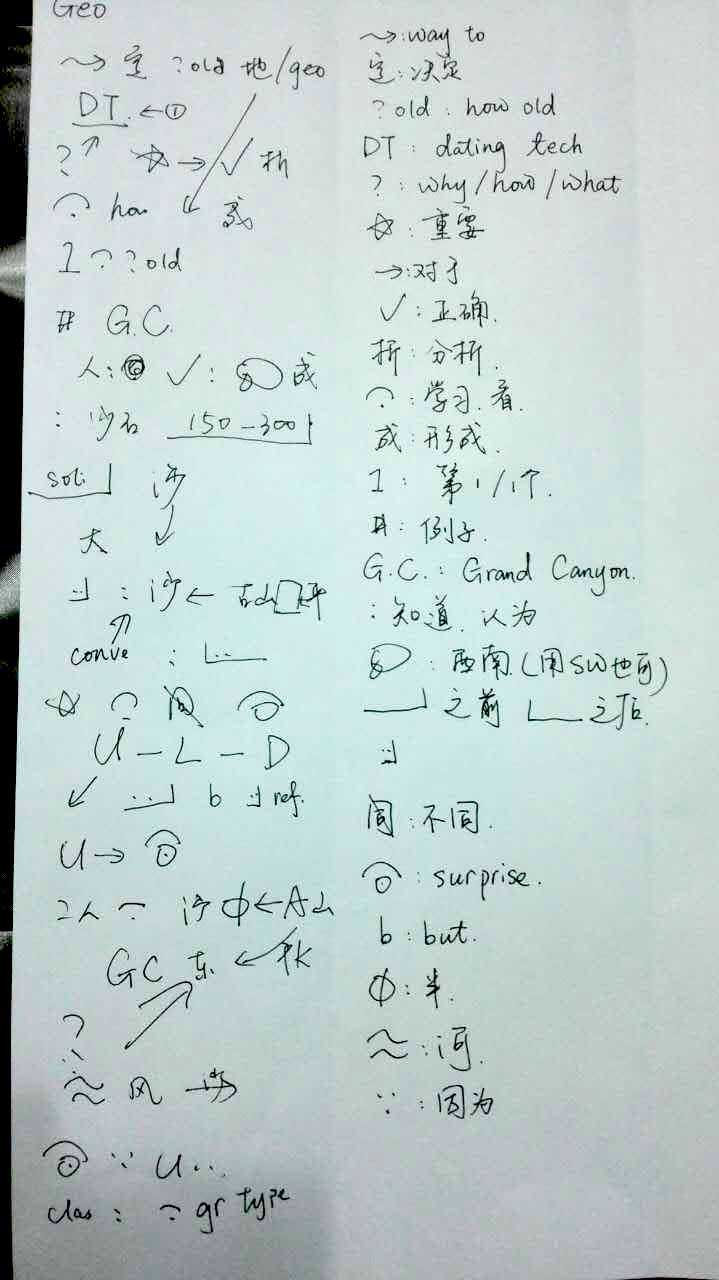 Geo
~> 定 ?old 地/geo
DT ←①
? ☆→✓析
⌒ how 成
1 ⌒ ?old
# G.C.
人: ✓: 成
: 沙石 150-300
soli 沙
大
: 沙←古山
conve :
☆ ⌒ 同
U-L-D
b ref.
U→
二人 沙 ф←A山
GC 东
?
≈ 风 沙
∵ U..
clas: gr type
~>: way to
定: 决定
?old: how old
DT: dating tech
?: why/how/what
☆: 重要
→: 对于
✓: 正确.
析: 分析.
⌒: 学习. 看.
成: 形成.
1: 第1/1个.
#: 例子.
G.C.: Grand Canyon.
: 知道, 认为
: 西南 (用SW也可)
之前 之后.
同: 不同.
: surprise.
b: but.
ф: 半.
≈: 河.
∵: 因为